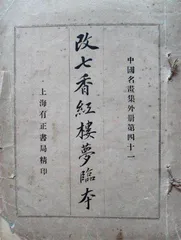 中國名畫集外冊第四十一
改七香紅樓夢臨本
上海有正書局精印